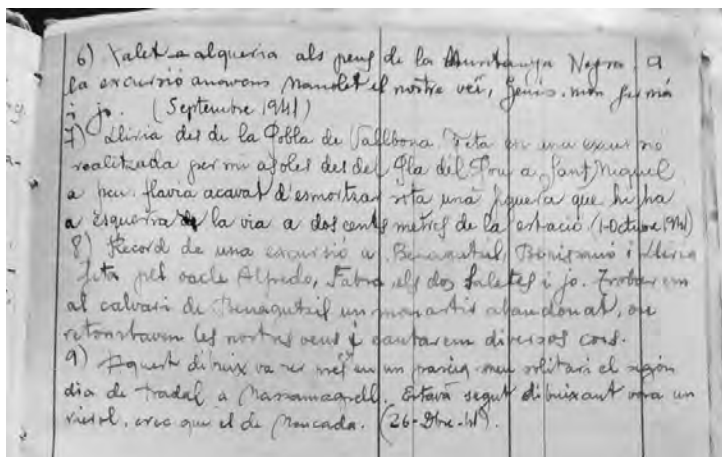 6) Xalet o alqueria als peus de la Muntanya Negra. A
la excursió anavons Manolet el nostre veí, Genís, mon germá
i jo. (Septembre 1941)
7) Lliria des de la Pobla de Vallbona. Feta en una excursió
realitzada per mi asoles des del Pla del Pou a Sant Miquel
a peu. Havia acavat d'esmortzar sota una figuera que hi ha
a esquerra de la via a dos cents metres de la estació. (1-Octubre 1941)
8) Record de una excursió a Benaguacil, Benisanó i Lliria
feta pel oncle Alfredo, Fabra, els dos Saletes i jo. Trobarem
al calvari de Benaguacil un monastir abandonat, on
retonstavem les nostres veus i cantarem diversos cors.
9) Aquest dibuix va ser fet en un passeig meu solitari el segón
dia de Nadal a Massamagrell. Estava segut dibuixant vora un
rierol, crec que el de Moncada. (26-Dbre-41).